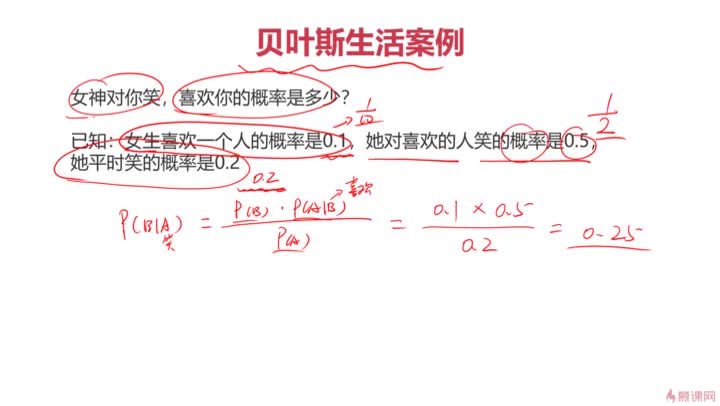 贝叶斯生活案例
女神对你笑，喜欢你的概率是多少？
1/10
1/2
已知：女生喜欢一个人的概率是0.1，她对喜欢的人笑的概率是0.5，
她平时笑的概率是0.2
0.2
喜欢
P(B|A) = P(B) · P(A|B) / P(A) = 0.1 × 0.5 / 0.2 = 0.25
笑
慕课网